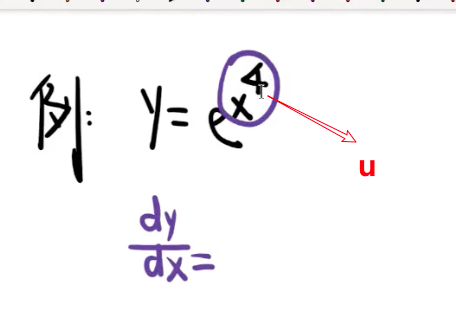 例: y = e^{x^4}
u
dy/dx =